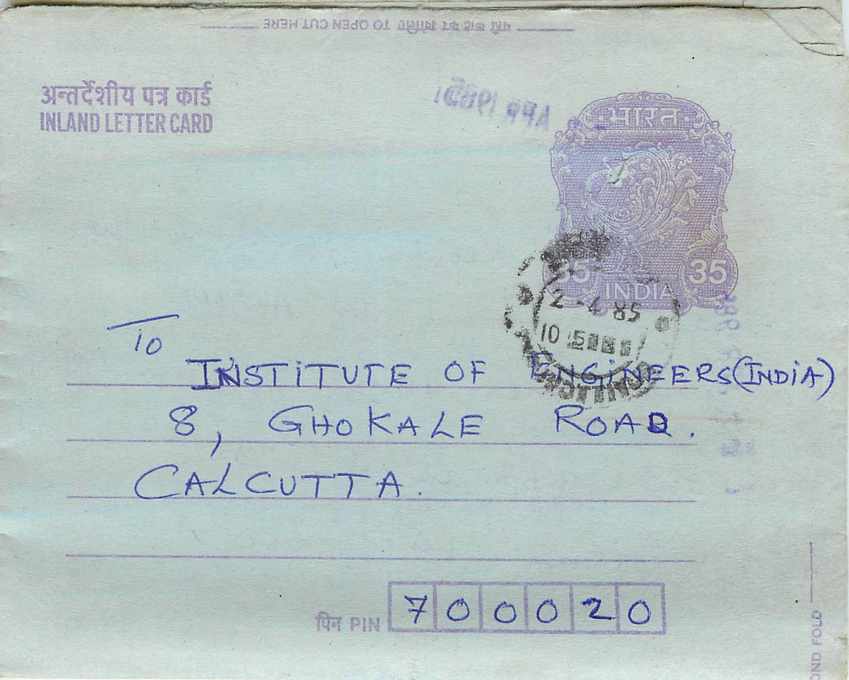 यहाँ काट कर खोलिए TO OPEN CUT HERE
अन्तर्देशीय पत्र कार्ड
INLAND LETTER CARD
भारत
35 35
INDIA
2-4 85
10
To
INSTITUTE OF ENGINEERS(INDIA)
8, GHOKALE ROAD.
CALCUTTA.
पिन PIN 700020
OND FOLD